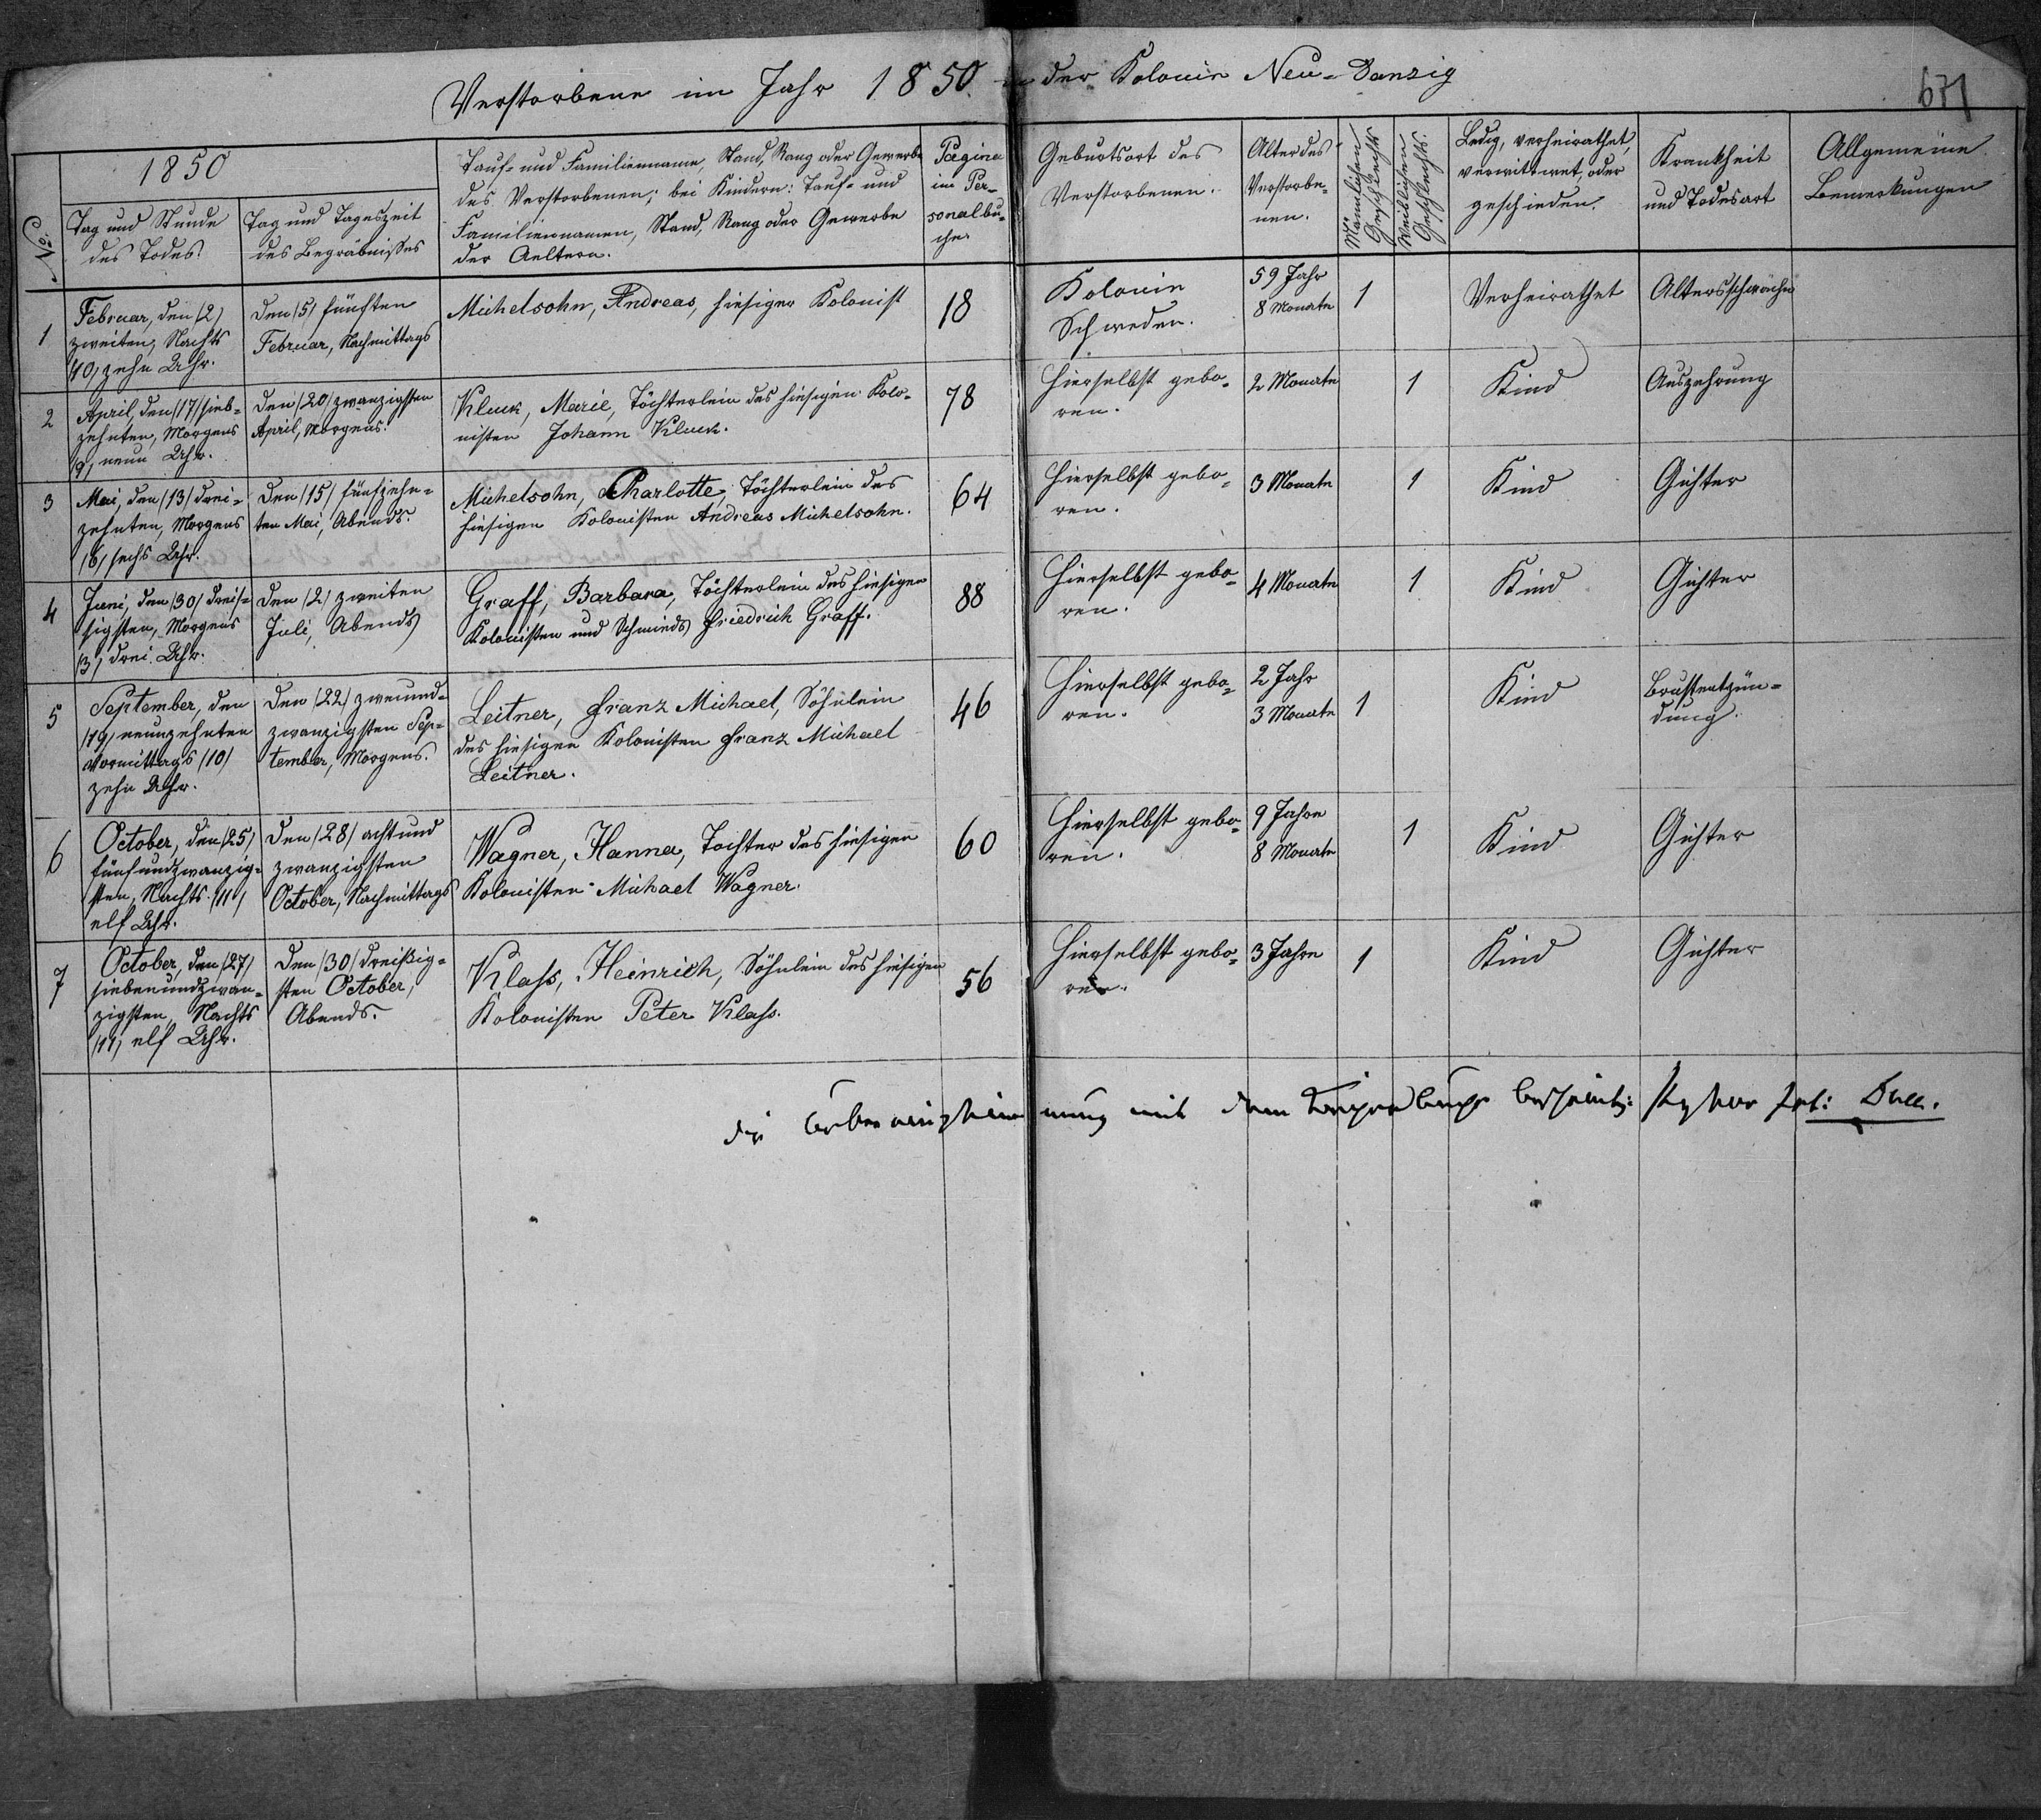 Verstorbene im Jahr 1850 in der Kolonie Neu-Danzig
671
No.
1850
Tag und Stunde
des Todes.
Tag und Tageszeit
des Begräbnisses
Tauf- und Familienname, Stand, Rang oder Gewerbe
des Verstorbenen; bei Kindern: Tauf- und
Familiennamen, Stand, Rang oder Gewerbe
der Aeltern.
Pagina
im Per-
sonalbu-
che
Geburtsort des
Verstorbenen.
Alter des
Verstorbe-
nen.
Männlichen
Geschlechts
Weiblichen
Geschlechts.
Ledig, verheirathet,
verwittwet, oder
geschieden.
Krankheit
und Todesart
Allgemeine
Bemerkungen
1
Februar, den /2/
zweiten, Nachts
/10/ zehn Uhr.
Den /5/ fünften
Februar, Nachmittags
Michelsohn, Andreas, hiesiger Kolonist
18
Kolonie
Schweden.
59 Jahr
8 Monate
1
Verheirathet
Altersschwäche
2
April, den /17/ sieb-
zehnten, Morgens
/9/ neun Uhr.
Den /20/ zwanzigsten
April, Morgens.
Kluck, Marie, Töchterlein des hiesigen Kolo-
nisten Johann Kluck.
78
Hierselbst gebo-
ren.
2 Monate
1
Kind
Auszehrung
3
Mai, den /13/ drei-
zehnten, Morgens
/6/ sechs Uhr.
Den /15/ fünfzehn-
ten Mai, Abends.
Michelsohn, Charlotte, Töchterlein des
hiesigen Kolonisten Andreas Michelsohn.
64
Hierselbst gebo-
ren.
3 Monate
1
Kind
Gichter
4
Juni, den /30/ dreis-
sigsten, Morgens
/3/ drei Uhr.
Den /2/ zweiten
Juli, Abends
Graff, Barbara, Töchterlein des hiesigen
Kolonisten und Schmieds Friedrich Graff.
88
Hierselbst gebo-
ren.
4 Monate
1
Kind
Gichter
5
September, den
/19/ neunzehnten
Vormittags /10/
zehn Uhr.
Den /22/ zweiund-
zwanzigsten Sep-
tember, Morgens.
Leitner, Franz Michael, Söhnlein
des hiesigen Kolonisten Franz Michael
Leitner.
46
Hierselbst gebo-
ren.
2 Jahr
3 Monate
1
Kind
Brustentzün-
dung.
6
October, den /25/
fünfundzwanzig-
sten, Nachts /11/
elf Uhr.
Den /28/ achtund
zwanzigsten
October, Nachmittags
Wagner, Hanna, Tochter des hiesigen
Kolonisten Michael Wagner.
60
Hierselbst gebo-
ren.
9 Jahre
8 Monate
1
Kind
Gichter
7
October, den /27/
siebenundzwan-
zigsten, Nachts
/11/ elf Uhr.
Den /30/ dreißig-
sten October,
Abends.
Klass, Heinrich, Söhnlein des hiesigen
Kolonisten Peter Klass.
56
Hierselbst gebo-
ren.
3 Jahre
1
Kind
Gichter
die mit dem